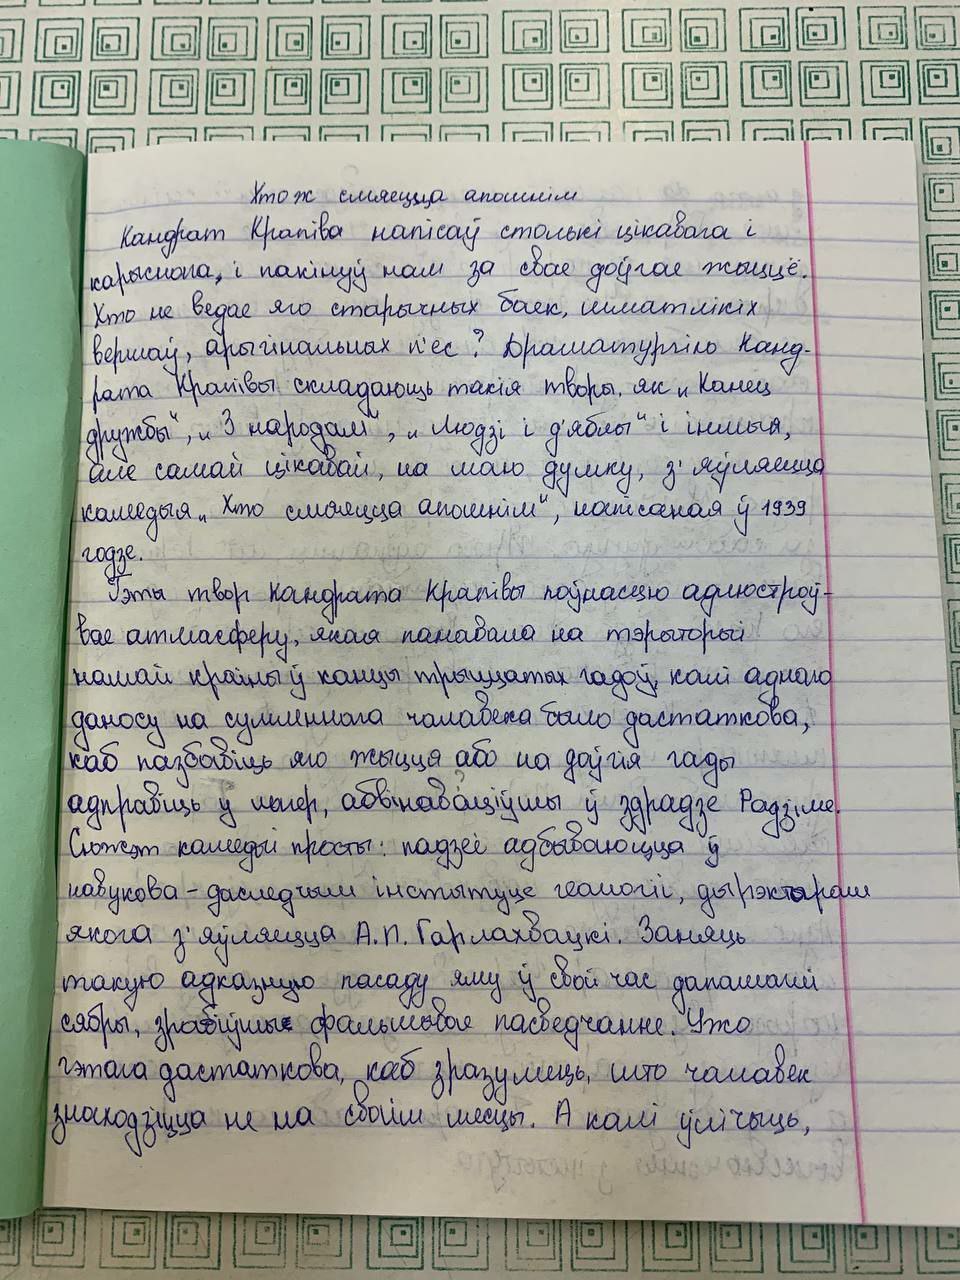 Хто ж смяецца апошнім
Кандрат Крапіва напісаў столькі цікавага і
карыснага, і пакінуў нам за свае доўгае жыццё.
Хто не ведае яго старычных баек, шматлікіх
вершаў, арыгінальных п'ес? Драматургію Канд-
рата Крапівы складаюць такія творы, як „Канец
дружбы“, „З народам“, „Людзі і д'яблы“ і іншыя,
але самай цікавай, на маю думку, з'яўляецца
камедыя „Хто смяецца апошнім“, напісаная ў 1939
годзе.
Гэты твор Кандрата Крапівы поўнасцю адлюстроў-
вае атмасферу, якая панавала на тэрыторыі
нашай краіны ў канцы трыццатых гадоў, калі аднаго
даносу на сумленнага чалавека было дастаткова,
каб пазбавіць яго жыцця або на доўгія гады
адправіць у лагер, абвінаваціўшы ў здрадзе Радзіме.
Сюжэт камедыі просты: падзеі адбываюцца ў
навукова-даследчым інстытуце геалогіі, дырэктарам
якога з'яўляецца А.П. Гарлахвацкі. Заняць
такую адказную пасаду яму ў свой час дапамаглі
сябры, зрабіўшые фальшывае пасведчанне. Ужо
гэтага дастаткова, каб зразумець, што чалавек
знаходзіцца не на сваім месцы. А калі ўлічыць,